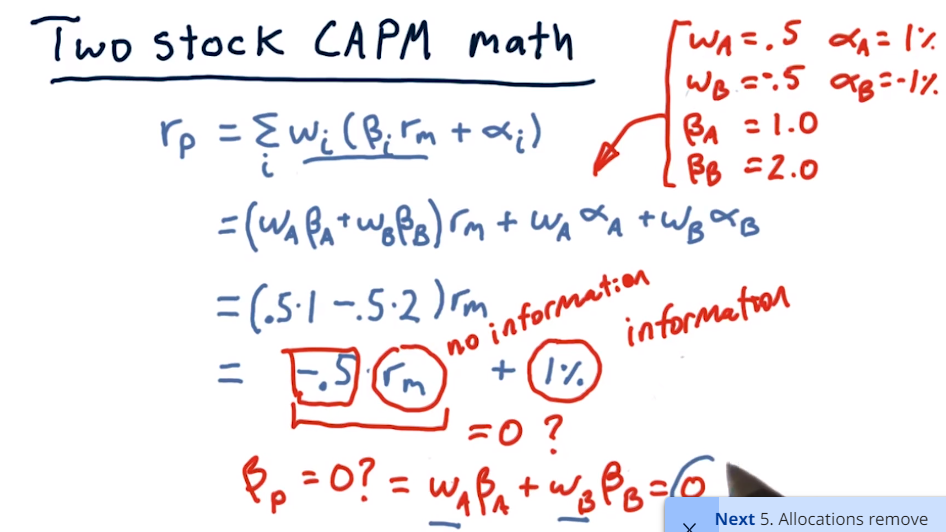 Two stock CAPM math
w_A = .5 α_A = 1%
w_B = -.5 α_B = -1%
β_A = 1.0
β_B = 2.0
r_p = Σ_i w_i (β_i r_m + α_i)
= (w_A β_A + w_B β_B) r_m + w_A α_A + w_B α_B
= (.5·1 - .5·2) r_m
no information
information
= -.5 · r_m + 1%
= 0 ?
β_p = 0? = w_A β_A + w_B β_B = 0
Next 5. Allocations remove